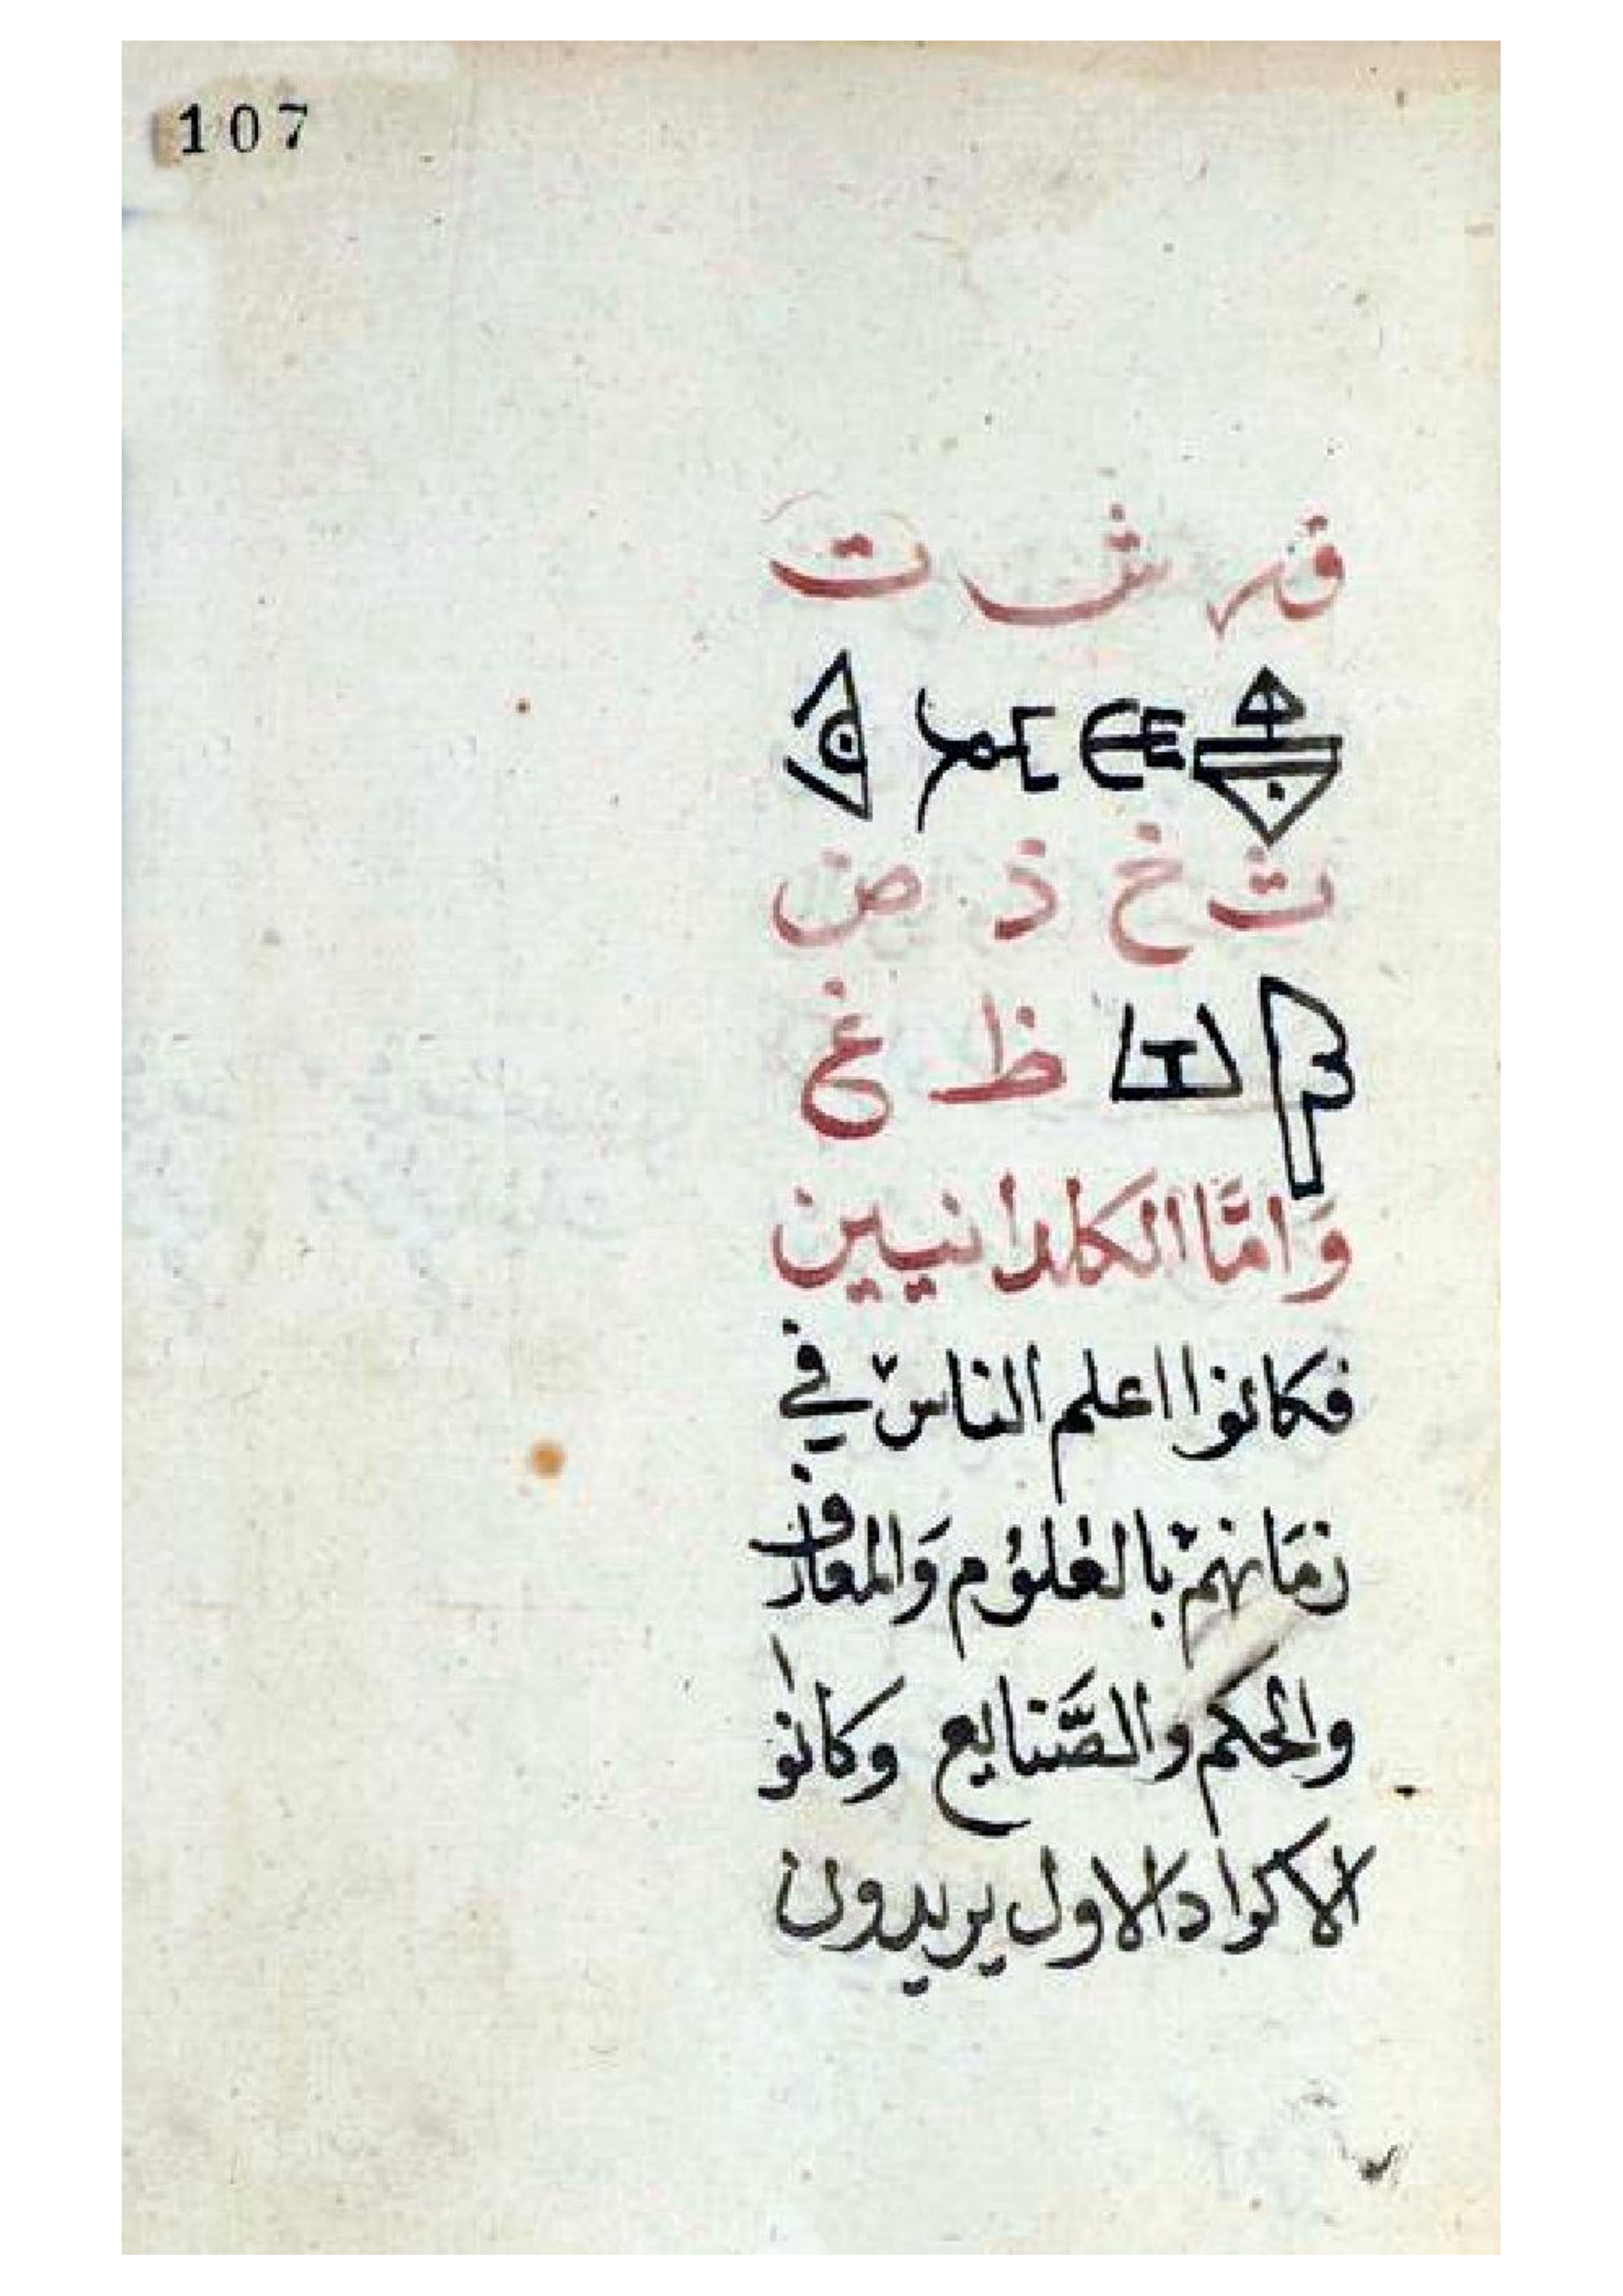 107
ق ر ش ت
ث خ ذ ض
ظ غ
وَامَّا الكلدانيين
فكانوا اعلم الناس في
زمَانهمْ بالعُلوُم وَالمعارف
والحكم والصَّنايع وكانوا
الاكراد الاول يريدون